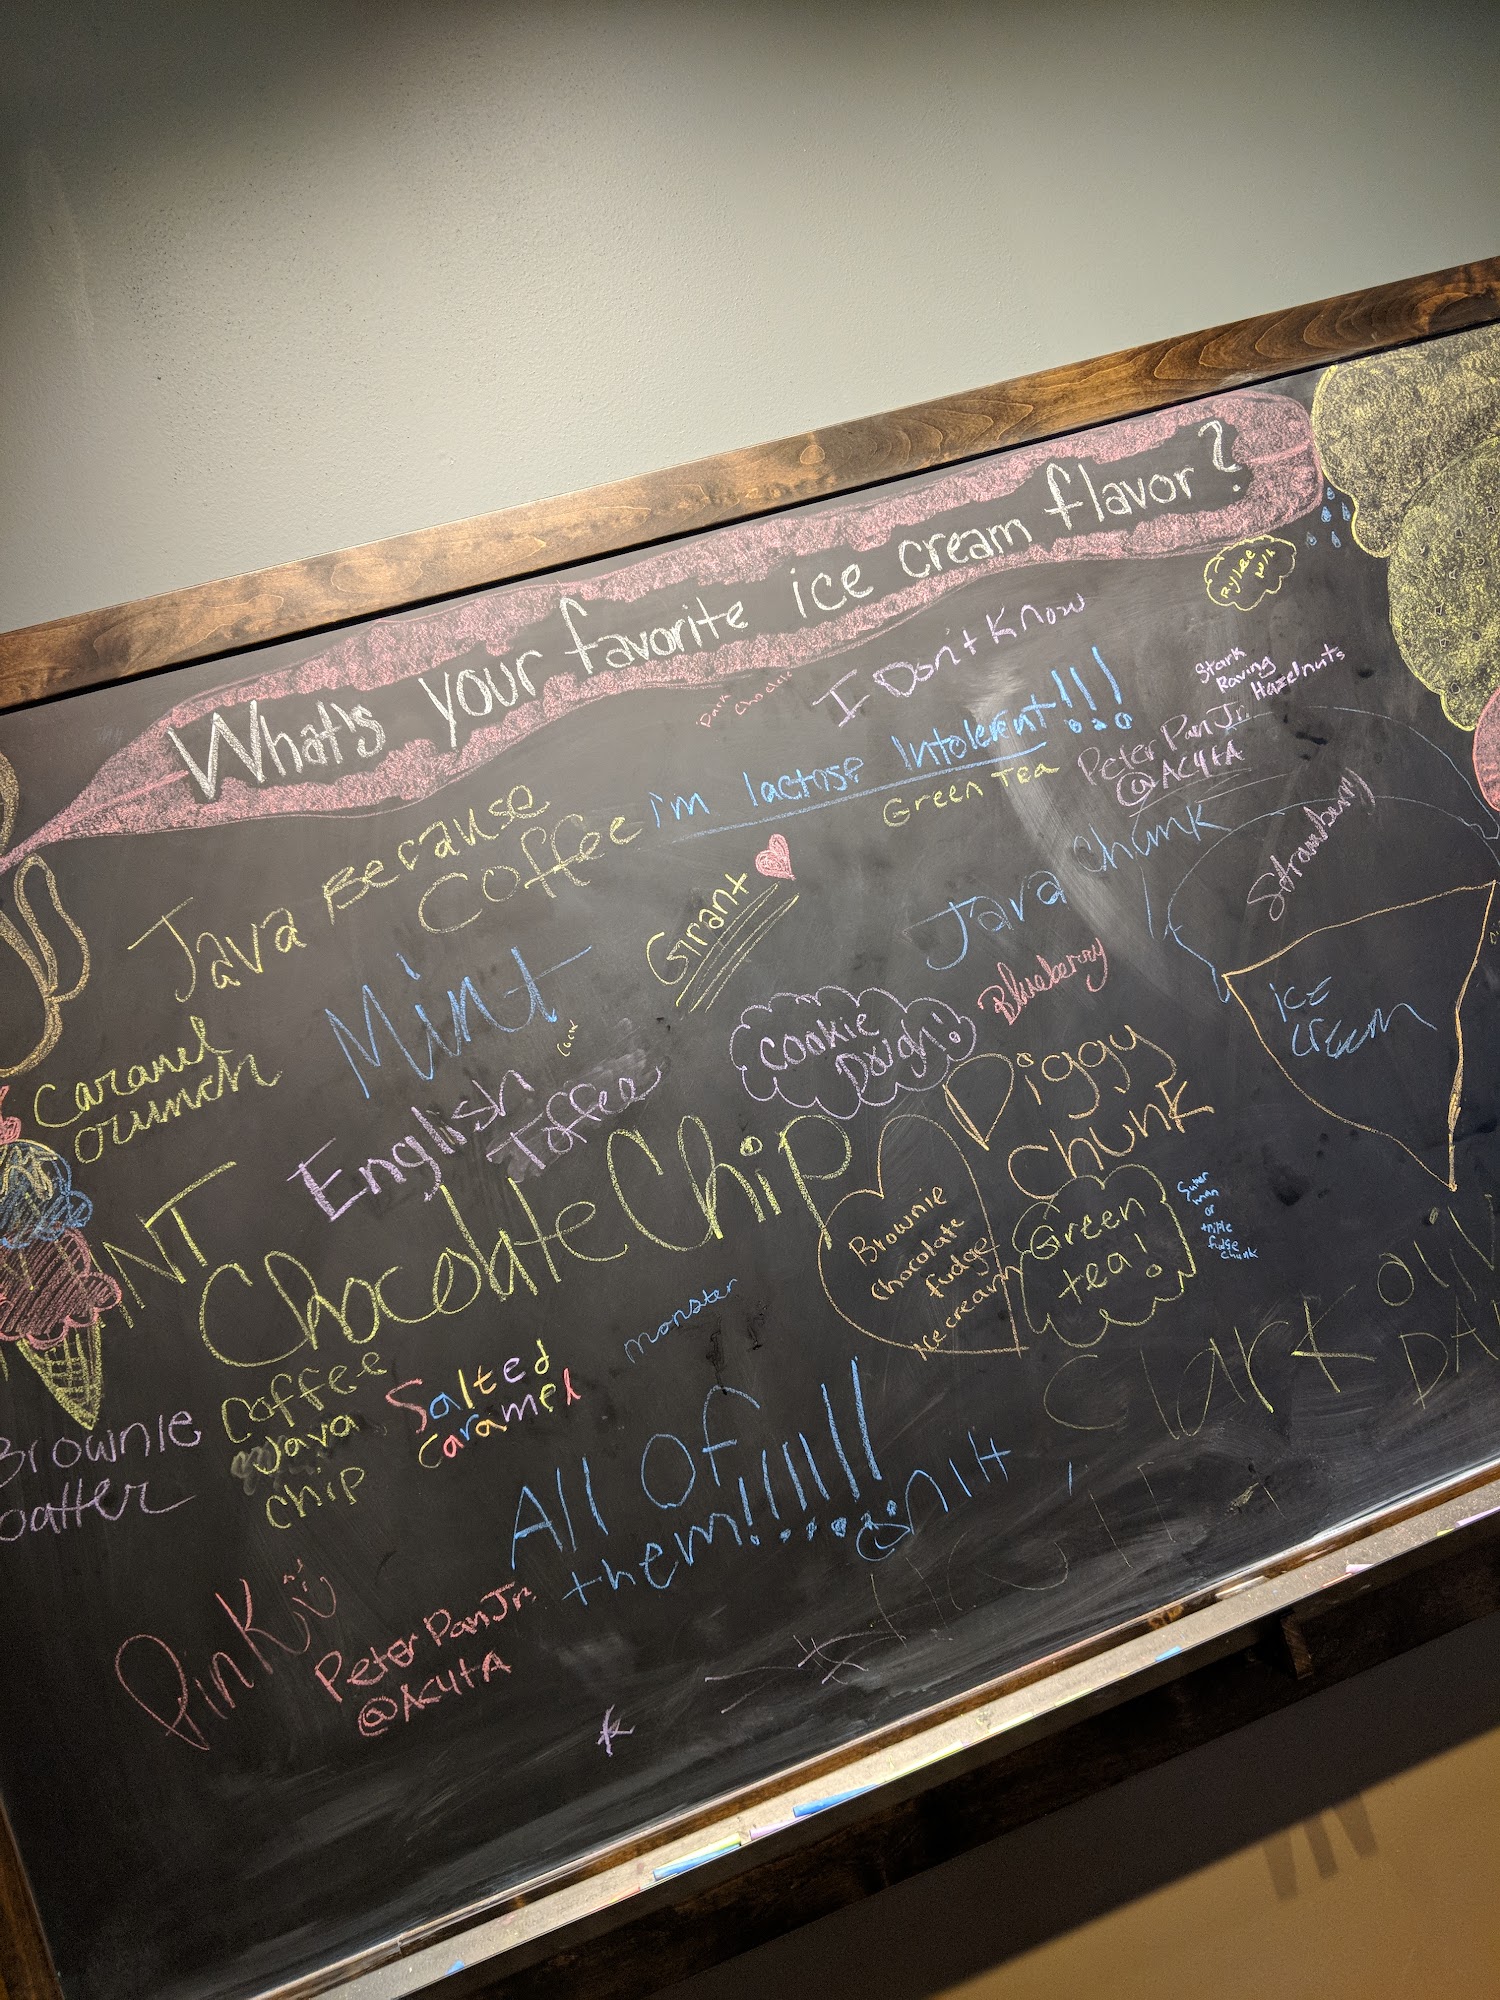 What's your favorite ice cream flavor?
I Don't Know
Dark
Chocolate
Stark
Raving
Hazelnuts
Java Because
Coffee
i'm lactose Intolerent!!!
Green Tea
Peter Pan Jr.
@AC4tA
Grant
Java Chunk
Strawberry
Mint
Blueberry
ice
cream
Caramel
crunch
English
Toffee
Cookie
Dough!
Diggy
Chunk
Chocolate Chip
Brownie
Chocolate
fudge
ice cream
Green
tea!
Super
man
or
triple
fudge
chunk
monster
Coffee
Java
chip
Salted
caramel
Brownie
batter
All Of
them!!!!!!!
Clark
Pink
Peter Pan Jr.
@AC4tA